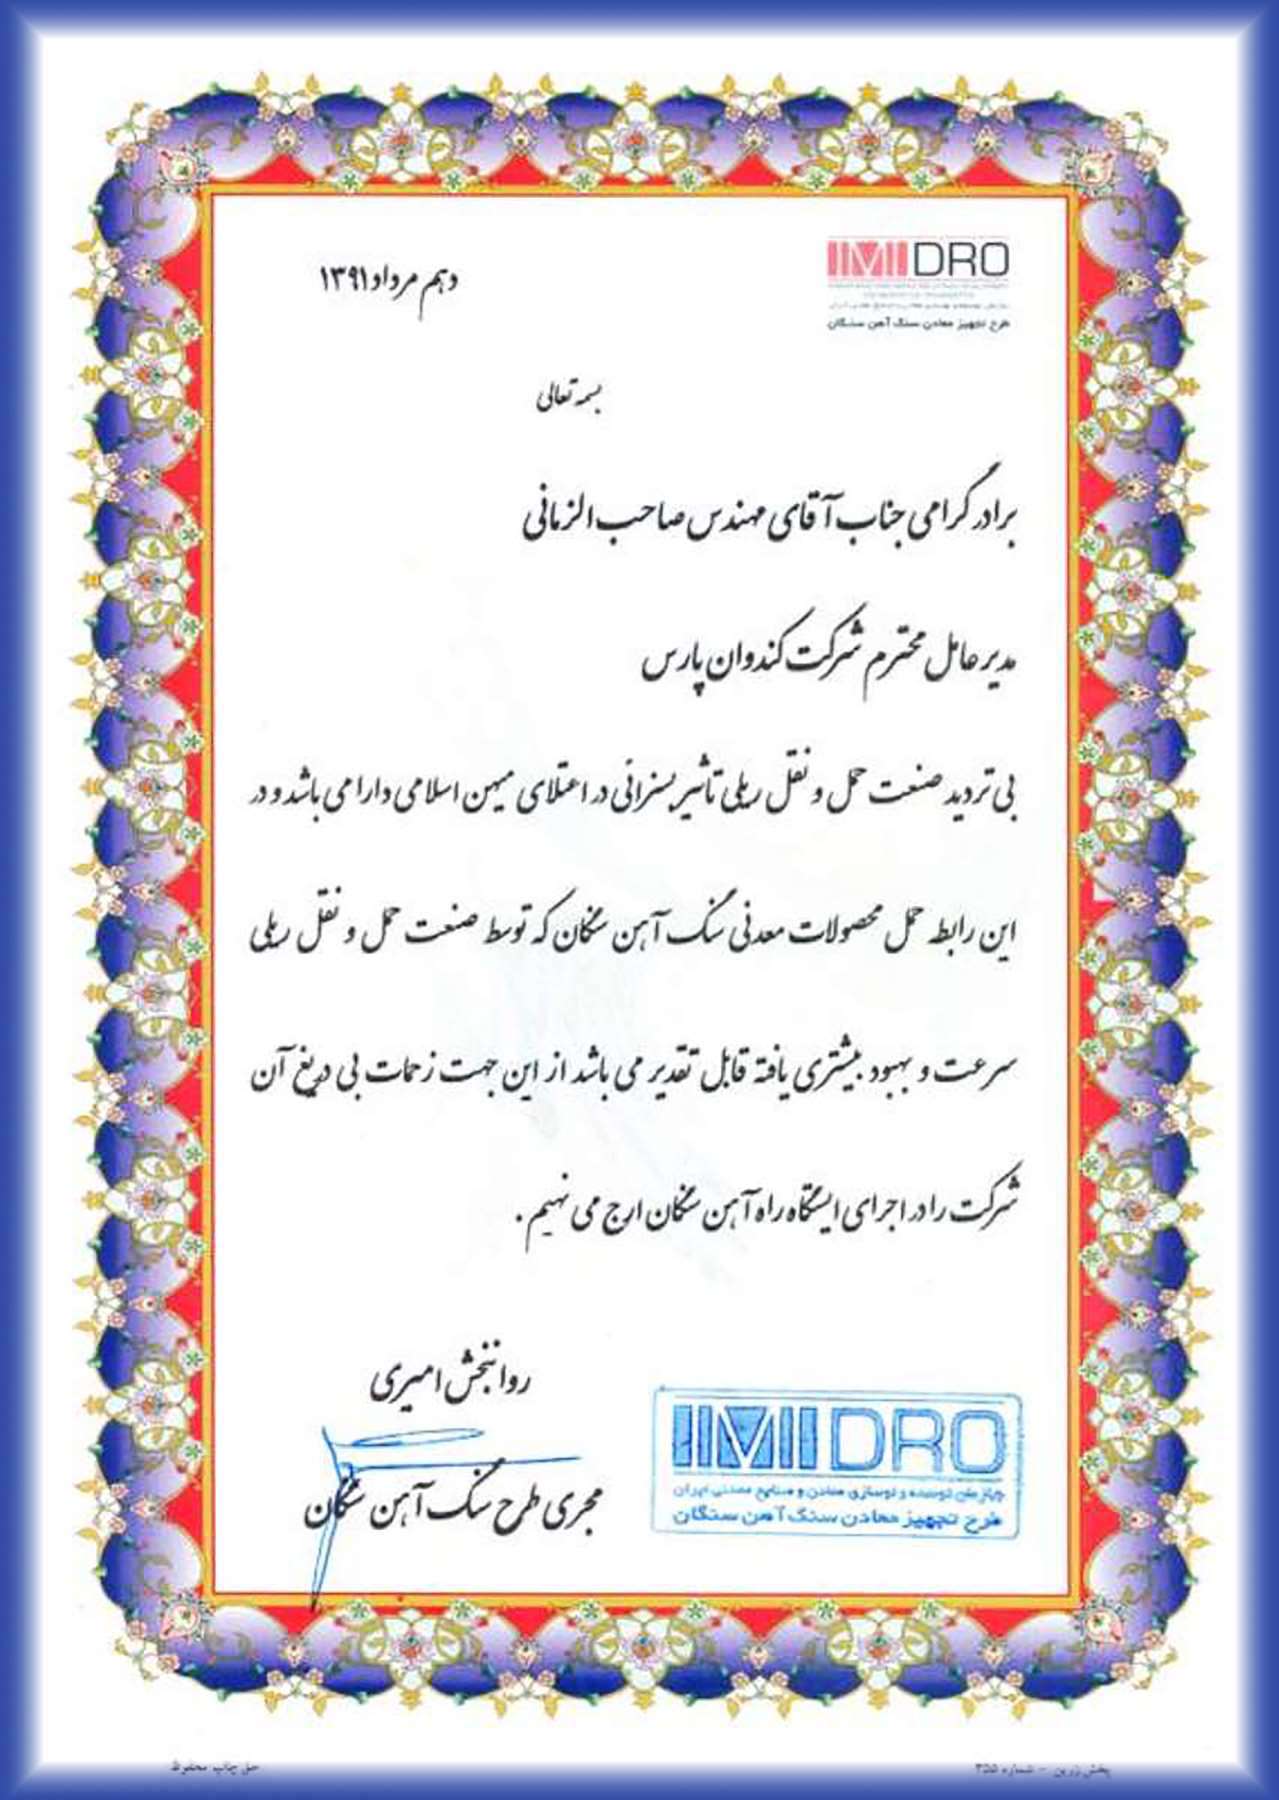 IMIDRO
طرح تجهیز معادن سنگ آهن سنگان
دهم مرداد ۱۳۹۱
بسمه تعالی
برادر گرامی جناب آقای مهندس صاحب الزمانی
مدیر عامل محترم شرکت کندوان پارس
بی تردید صنعت حمل و نقل ریلی تأثیر بسزائی در اعتلای میهن اسلامی دارا می باشد و در
این رابطه حمل محصولات معدنی سنگ آهن سنگان که توسط صنعت حمل و نقل ریلی
سرعت و بهبود بیشتری یافته قابل تقدیر می باشد از این جهت زحمات بی دریغ آن
شرکت را در اجرای ایستگاه راه آهن سنگان ارج می نهیم.
روانبخش امیری
مجری طرح سنگ آهن سنگان
IMIDRO
سازمان توسعه و نوسازی معادن و صنایع معدنی ایران
طرح تجهیز معادن سنگ آهن سنگان
پخش زرین - شماره ۳۵۵
حق چاپ محفوظ